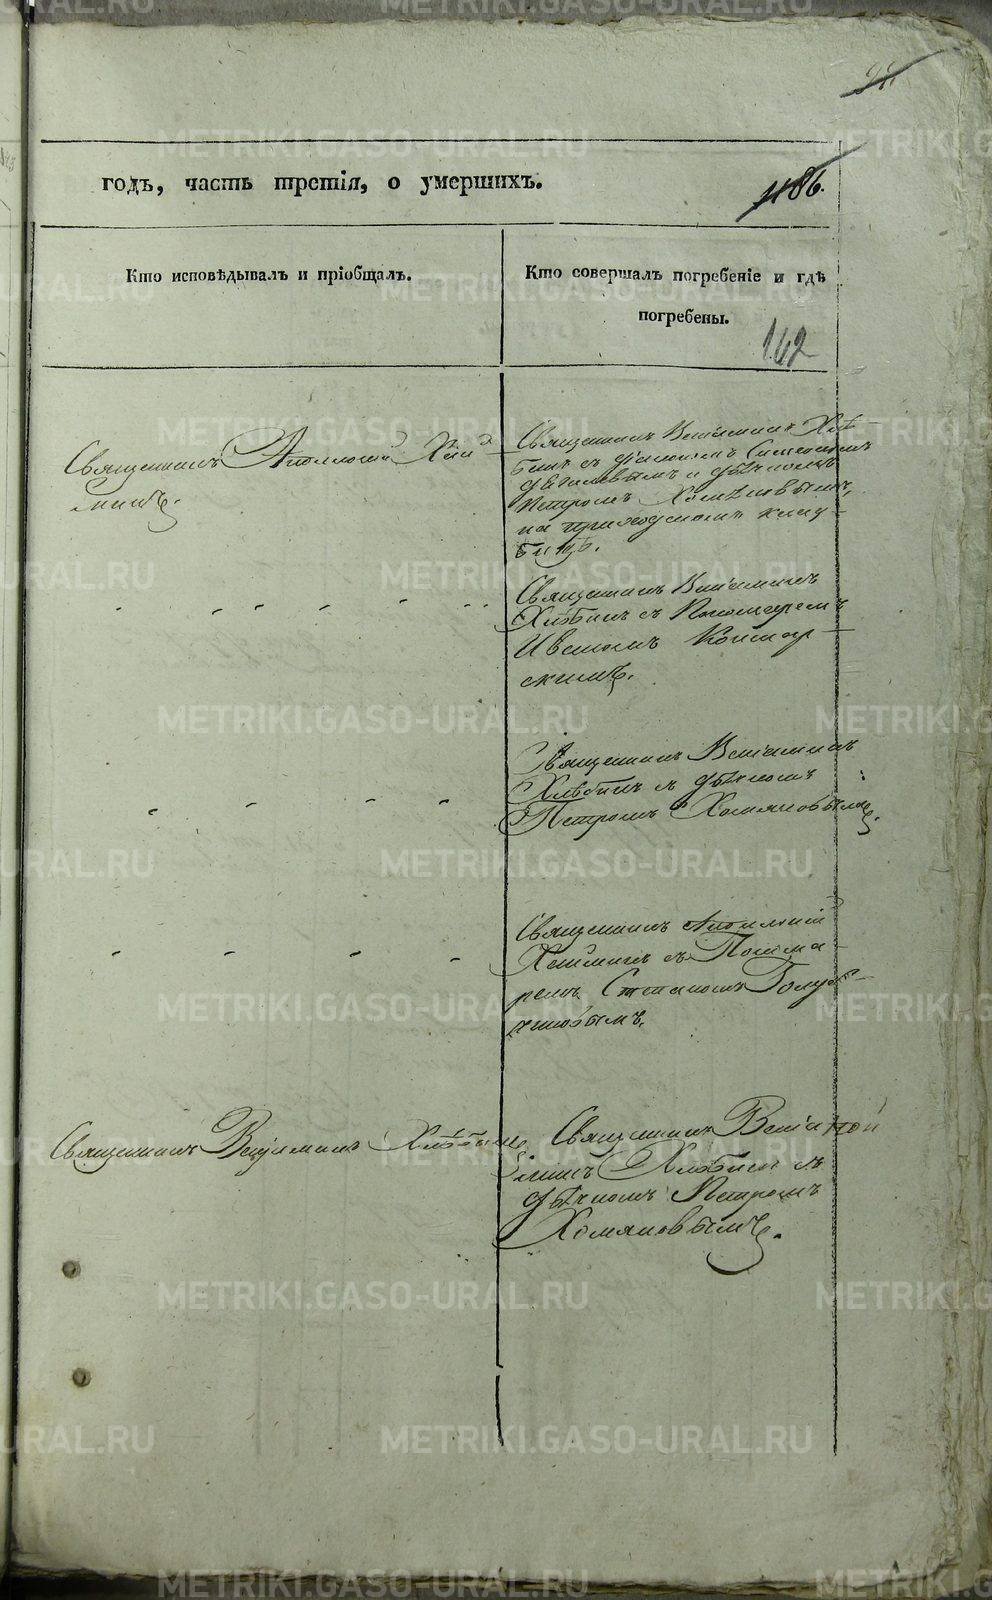 годъ, часть третія, о умершихъ.
1186.
Кто исповѣдывалъ и пріобщалъ.
Кто совершалъ погребеніе и гдѣ
погребены.
162
Священникъ
Священникъ Веніаминъ Хлѣ-
бинъ съ діакономъ
и дьячкомъ
Петромъ Хомяковымъ,
на приходскомъ клад-
бищѣ.
Священникъ Веніаминъ
Хлѣбинъ съ Пономаремъ
Иваномъ
Священникъ Веніаминъ
Хлѣбинъ съ дьячкомъ
Петромъ Хомяковымъ.
Священникъ
съ Понома-
ремъ Степаномъ Голуб-
чиковымъ.
Священникъ Веніаминъ Хлѣбинъ
Священникъ Веніа
минъ Хлѣбинъ съ
дьячкомъ Петромъ
Хомяковымъ.
METRIKI.GASO-URAL.RU